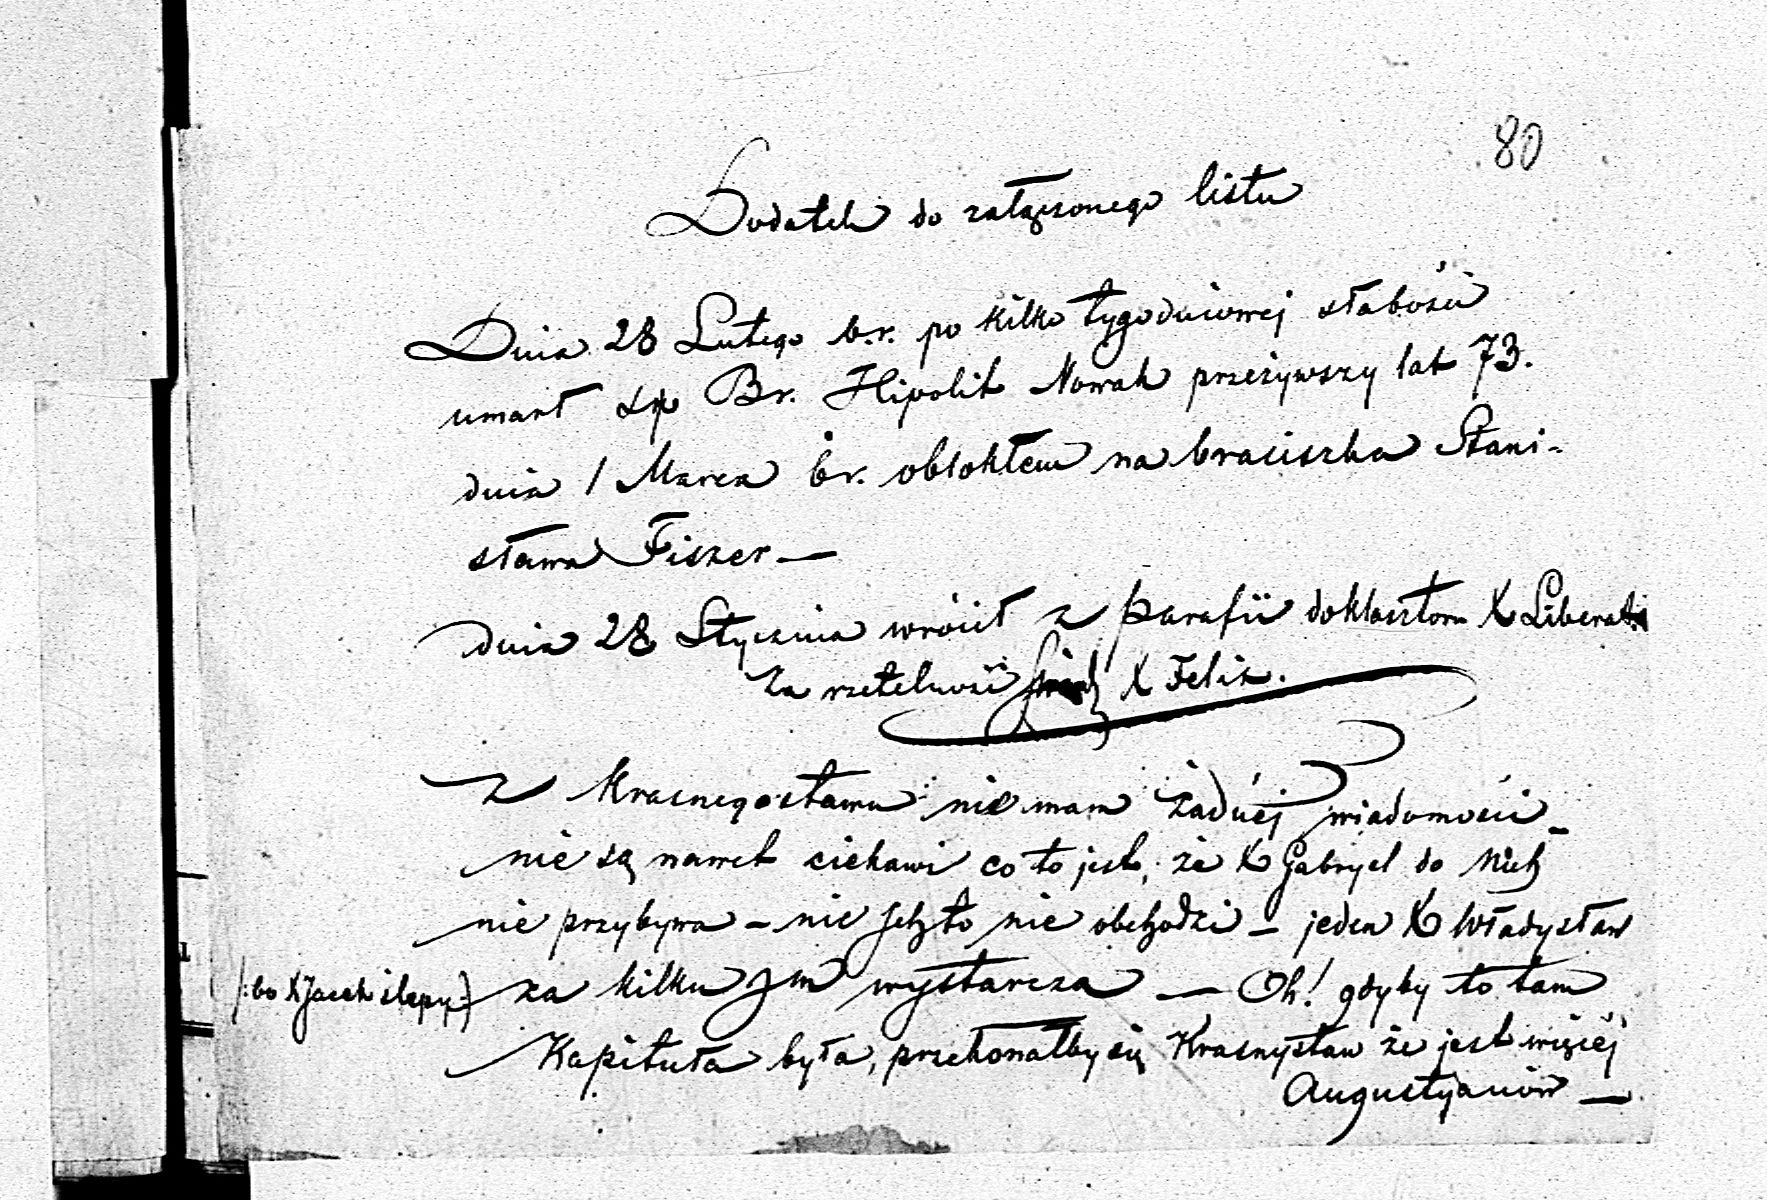 80
Dodatek do załączonego listu
Dnia 28 Lutego b.r. po kilko tygodniowej słabości
umarł śp Br. Hipolit Nowak przeżywszy lat 73.
dnia 1 Marca br. obłokłem na braciszka Stani-
sława Fiszer —
dnia 28 Stycznia wrócił z parafii do klasztoru X Liberat
Za rzetelność X Felix.
Z Krasnegostawu nie mam żadnéj wiadomości —
nie są nawet ciekawi co to jest, że X Gabryel do Nich
nie przybywa — nic Ich to nie obchodzi — jeden X Władysław
(: bo X Jacek ślepy :) za kilku Im wystarcza — Oh! gdyby to tam
Kapituła była, przekonałby się Krasnystaw że jest więcéj
Augustyanów —